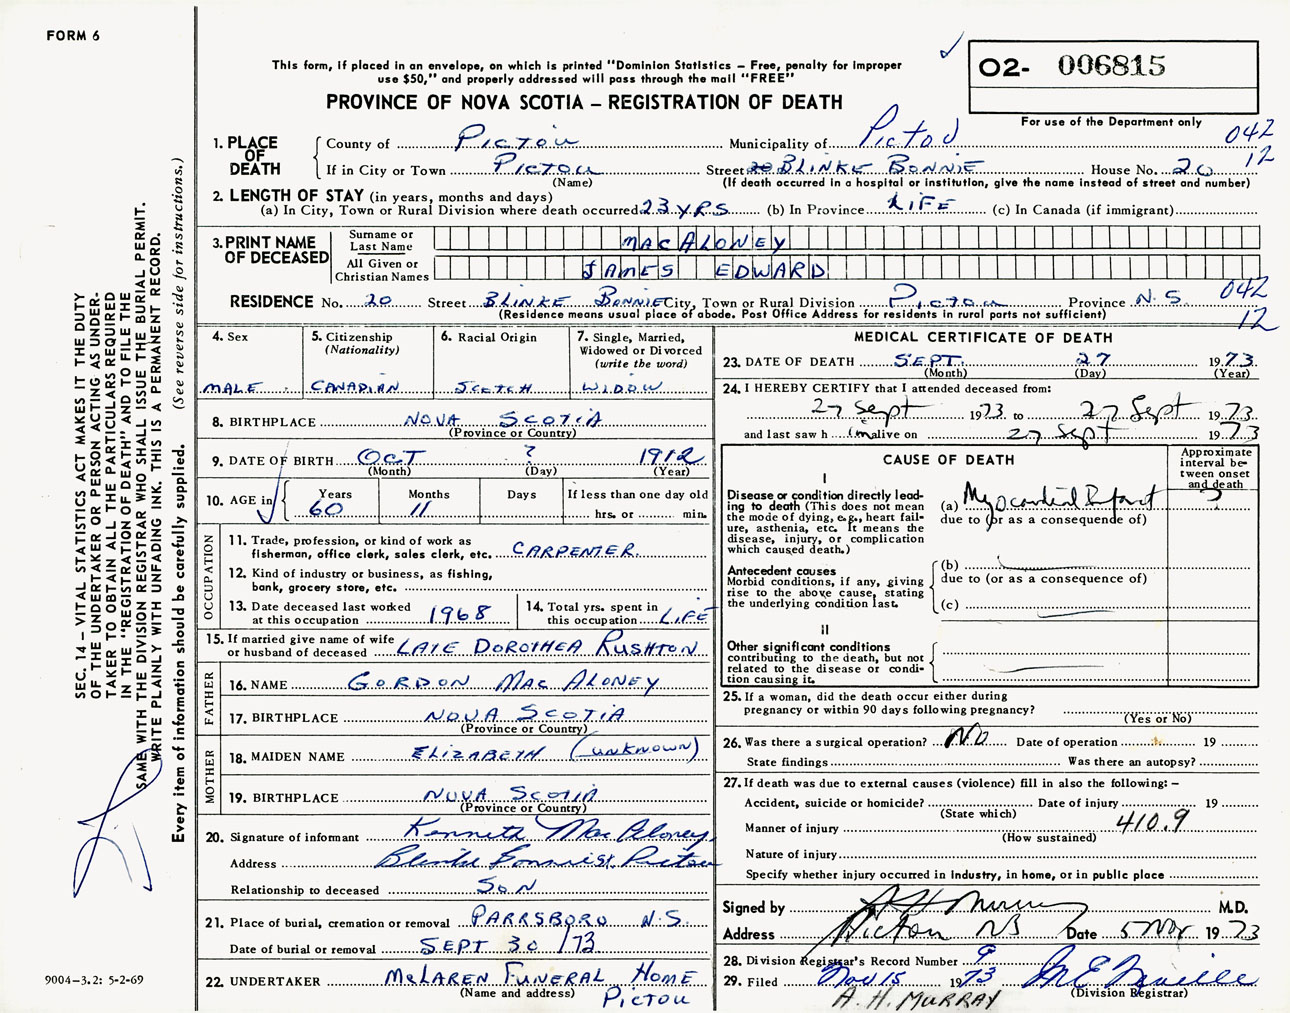 FORM 6
This form, if placed in an envelope, on which is printed "Dominion Statistics – Free, penalty for improper
use $50," and properly addressed will pass through the mail "FREE"
O2- 006815
PROVINCE OF NOVA SCOTIA – REGISTRATION OF DEATH
For use of the Department only
1. PLACE OF DEATH
County of Pictou Municipality of Pictou 042
If in City or Town Pictou Street Blinke Bonnie House No. 20 12
(Name) (If death occurred in a hospital or institution, give the name instead of street and number)
2. LENGTH OF STAY (in years, months and days)
(a) In City, Town or Rural Division where death occurred 23 YRS (b) In Province LIFE (c) In Canada (if immigrant)
3. PRINT NAME OF DECEASED
Surname or Last Name MacALONEY
All Given or Christian Names JAMES EDWARD
RESIDENCE No. 20 Street BLINKE BONNIE City, Town or Rural Division Pictou Province N.S. 042
(Residence means usual place of abode. Post Office Address for residents in rural parts not sufficient) 12
4. Sex
MALE
5. Citizenship
(Nationality)
CANADIAN
6. Racial Origin
SCOTCH
7. Single, Married,
Widowed or Divorced
(write the word)
WIDOW
8. BIRTHPLACE NOVA SCOTIA
(Province or Country)
9. DATE OF BIRTH OCT ? 1912
(Month) (Day) (Year)
10. AGE in
Years Months Days If less than one day old
60 11 hrs. or min.
OCCUPATION
11. Trade, profession, or kind of work as
fisherman, office clerk, sales clerk, etc. CARPENTER
12. Kind of industry or business, as fishing,
bank, grocery store, etc.
13. Date deceased last worked
at this occupation 1968
14. Total yrs. spent in
this occupation LIFE
15. If married give name of wife
or husband of deceased LATE DOROTHEA RUSHTON
FATHER
16. NAME GORDON MAC ALONEY
17. BIRTHPLACE NOVA SCOTIA
(Province or Country)
MOTHER
18. MAIDEN NAME ELIZABETH (UNKNOWN)
19. BIRTHPLACE NOVA SCOTIA
(Province or Country)
20. Signature of informant Kenneth MacAloney
Address Blinke Bonnie St. Pictou
Relationship to deceased SON
21. Place of burial, cremation or removal PARRSBORO N.S.
Date of burial or removal SEPT 30/73
22. UNDERTAKER McLAREN FUNERAL HOME
(Name and address) PICTOU
MEDICAL CERTIFICATE OF DEATH
23. DATE OF DEATH SEPT. 27 1973
(Month) (Day) (Year)
24. I HEREBY CERTIFY that I attended deceased from:
27 Sept 1973 to 27 Sept 1973
and last saw him alive on 27 Sept 1973
CAUSE OF DEATH
Approximate
interval be-
tween onset
and death
I
Disease or condition directly lead-
ing to death (This does not mean
the mode of dying, e.g., heart fail-
ure, asthenia, etc. It means the
disease, injury, or complication
which caused death.)
(a) Myocardial Infarct ?
due to (or as a consequence of)
Antecedent causes
Morbid conditions, if any, giving
rise to the above cause, stating
the underlying condition last.
(b)
due to (or as a consequence of)
(c)
II
Other significant conditions
contributing to the death, but not
related to the disease or condi-
tion causing it.
25. If a woman, did the death occur either during
pregnancy or within 90 days following pregnancy?
(Yes or No)
26. Was there a surgical operation? No Date of operation 19
State findings Was there an autopsy?
27. If death was due to external causes (violence) fill in also the following: –
Accident, suicide or homicide? Date of injury 19
(State which)
Manner of injury 410.9
(How sustained)
Nature of injury
Specify whether injury occurred in industry, in home, or in public place
Signed by A H Murray M.D.
Address Pictou NS Date 5 Nov 1973
28. Division Registrar's Record Number 9
29. Filed Nov 15 1973
(Division Registrar)
A. H. MURRAY
SEC. 14 – VITAL STATISTICS ACT MAKES IT THE DUTY
OF THE UNDERTAKER OR PERSON ACTING AS UNDER-
TAKER TO OBTAIN ALL THE PARTICULARS REQUIRED
IN THE "REGISTRATION OF DEATH" AND TO FILE THE
SAME WITH THE DIVISION REGISTRAR WHO SHALL ISSUE THE BURIAL PERMIT.
WRITE PLAINLY WITH UNFADING INK. THIS IS A PERMANENT RECORD.
Every item of information should be carefully supplied. (See reverse side for instructions.)
9004-3.2: 5-2-69